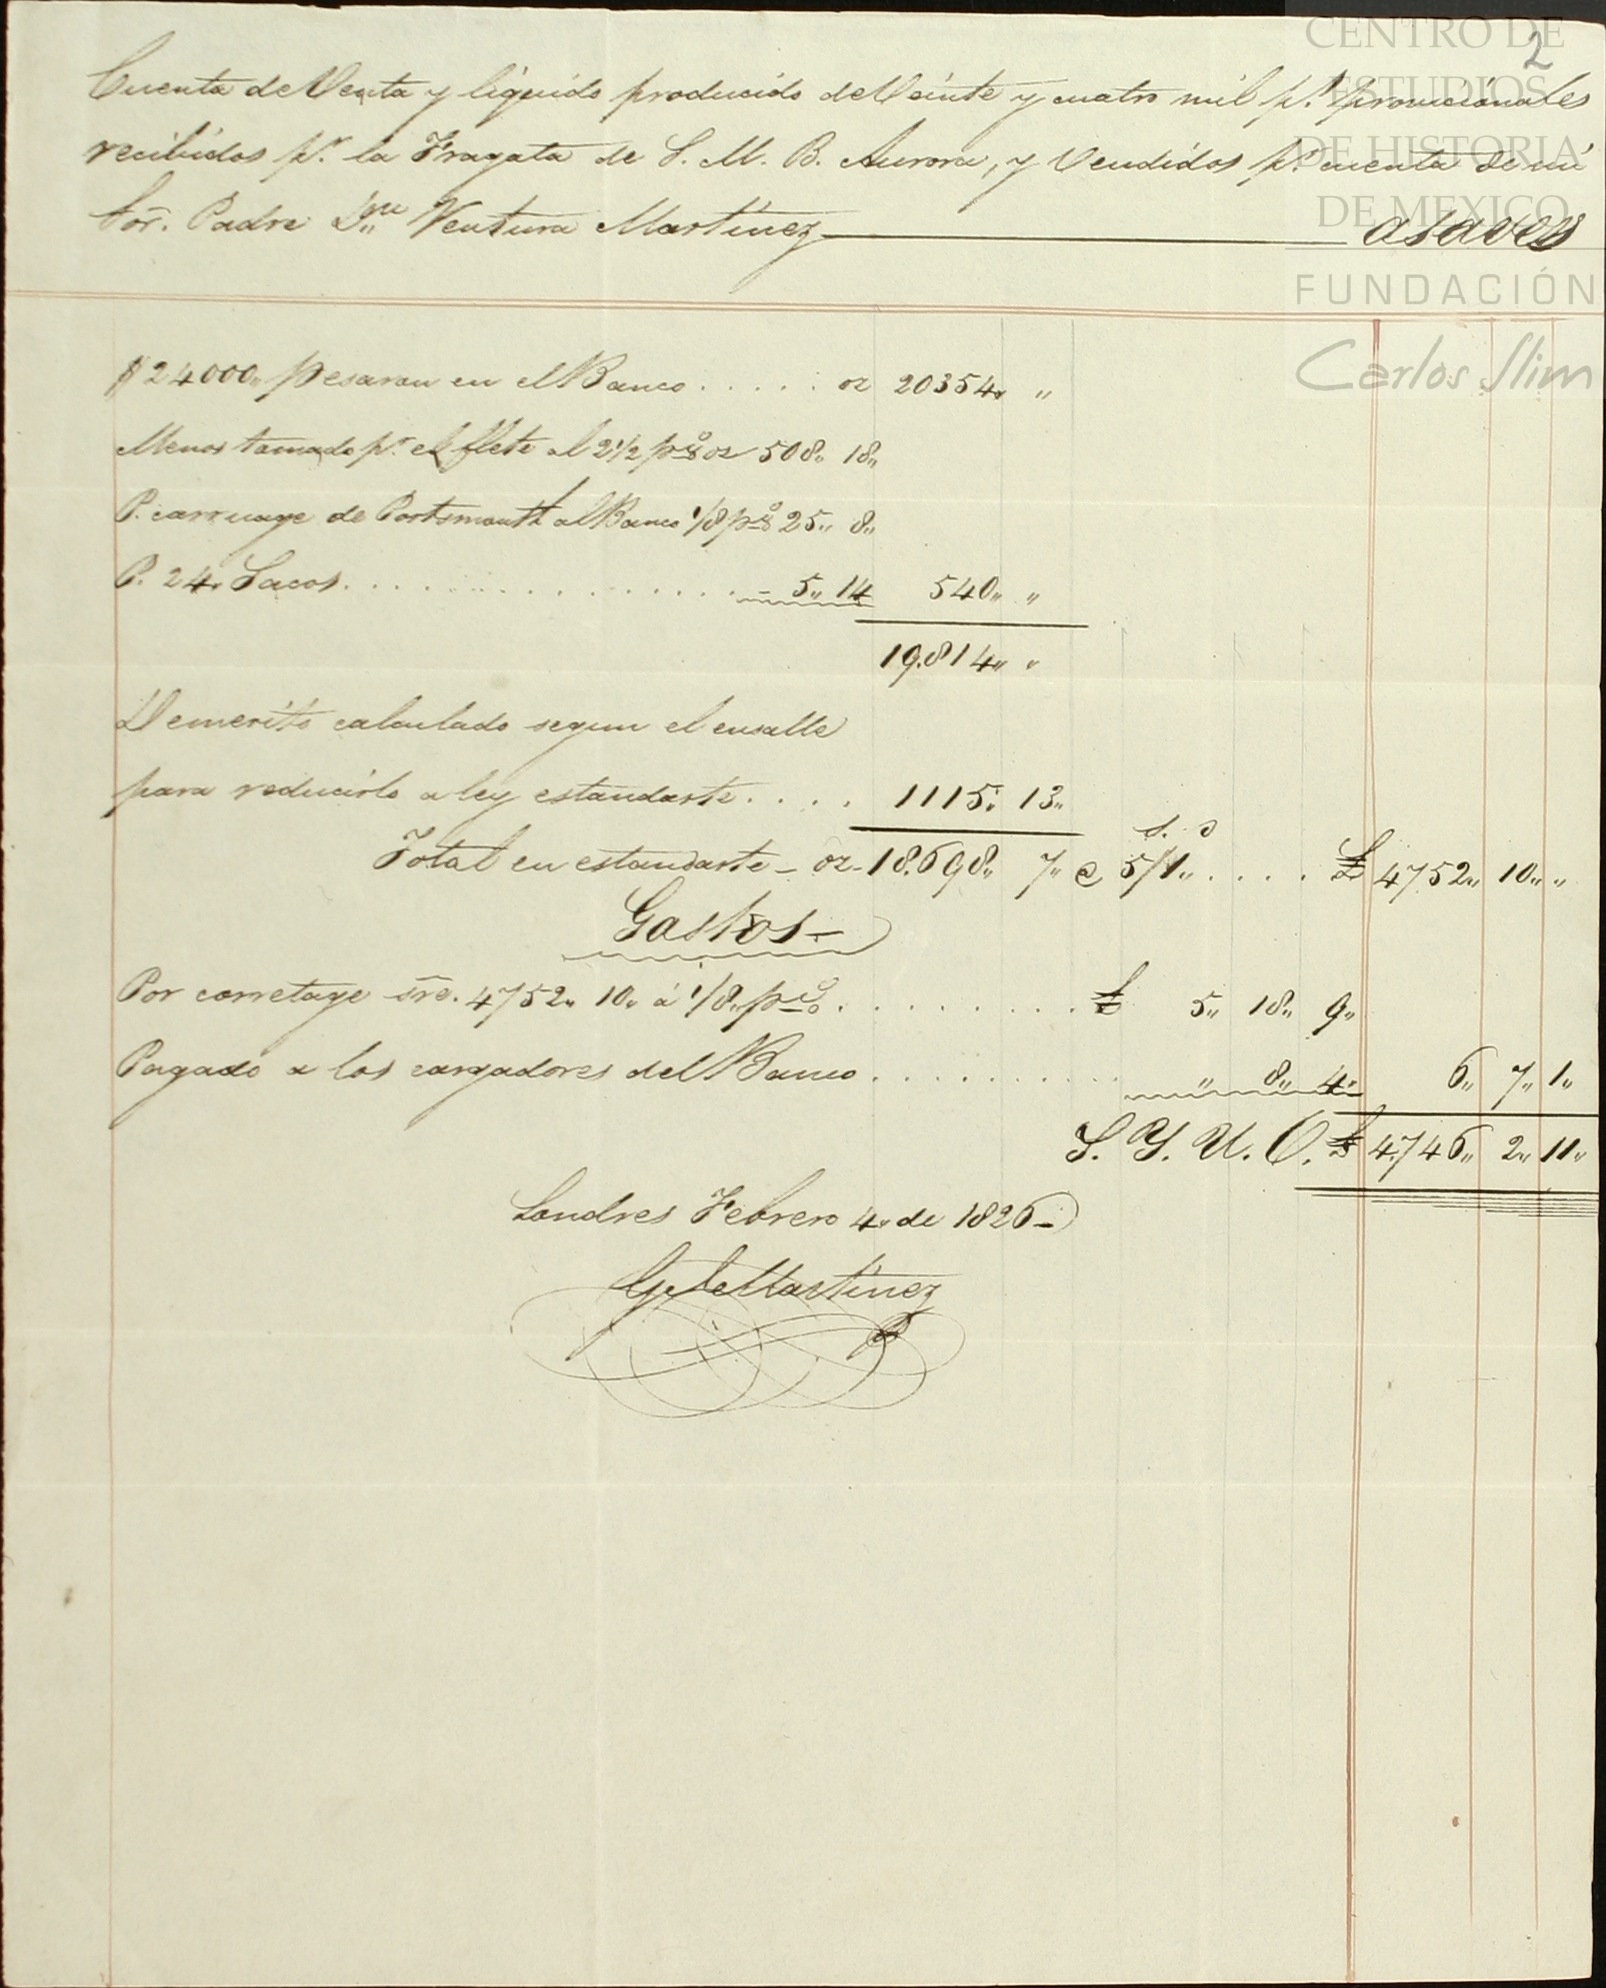 CENTRO DE
ESTUDIOS
DE HISTORIA
DE MEXICO
FUNDACIÓN
Carlos Slim
2
Cuenta de Venta y liquido producido de Veinte y cuatro mil p.s provicionales
recibidos p.r la Fragata de S. M. B. Aurora, y Vendidos p.r cuenta de mi
Sor. Padre D.n Ventura Martinez asaver
$ 24000,, pesaron en el Banco . . . . . oz 20354,, ,,
Menos tomado p.r el flete al 2 1/2 p% oz 508,, 18,,
P. carruage de Portsmouth al Banco 1/8 p% 25,, 8,,
P. 24,, Sacos . . . . . . . . . . . 5,, 14 540,, ,,
19.814,, ,,
Demerito calculado segun el ensalle
para reducirlo a ley estandarte . . . . 1115,, 13,,
Total en estandarte - oz - 18.698,, 7,, @ 5/1,, . . . . £ 4752,, 10,, ,,
s. d
Gastos -
Por corretage sre. 4752,, 10,, á 1/8,, p% . . . . . . . . . £ 5,, 18,, 9,,
Pagado a los cargadores del Banco . . . . . . . . . . ,, 8,, 4,, 6,, 7,, 1,,
S. Y. U. O. £ 4.746,, 2,, 11,,
Londres Febrero 4,, de 1826 -
Martinez